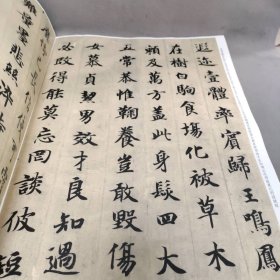 遐迩壹體率賓歸王鳴鳳
在樹白駒食場化被草木
賴及萬方蓋此身髮四大
五常恭惟鞠養豈敢毀傷
女慕貞絜男效才良知過
必改得能莫忘罔談彼短
難量墨悲絲